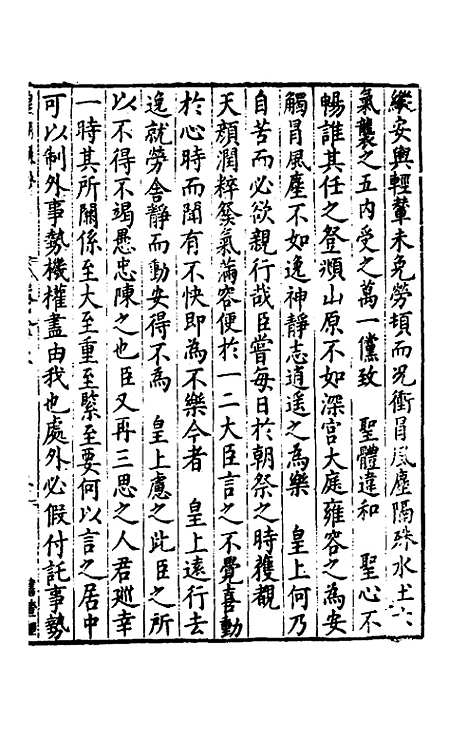 縱安輿輕輦未免勞頓而况衝冒風塵隔殊水土六
氣襲之五内受之萬一儻致　聖體違和　聖心不
暢誰其任之登瀕山原不如深宫大庭雍容之為安
觸冒風塵不如逸神靜志逍遥之為樂　皇上何乃
自苦而必欲親行哉臣嘗每日於朝祭之時獲覩
天顔潤粹癸氣滿容便於一二大臣言之不覺喜動
於心時而聞有不快即為不樂今者　皇上遠行去
逸就勞舍靜而動安得不為　皇上慮之此臣之所
以不得不竭愚忠陳之也臣又再三思之人君廵幸
一時其所關係至大至重至緊至要何以言之居中
可以制外事勢機權盡由我也處外必假付託事勢